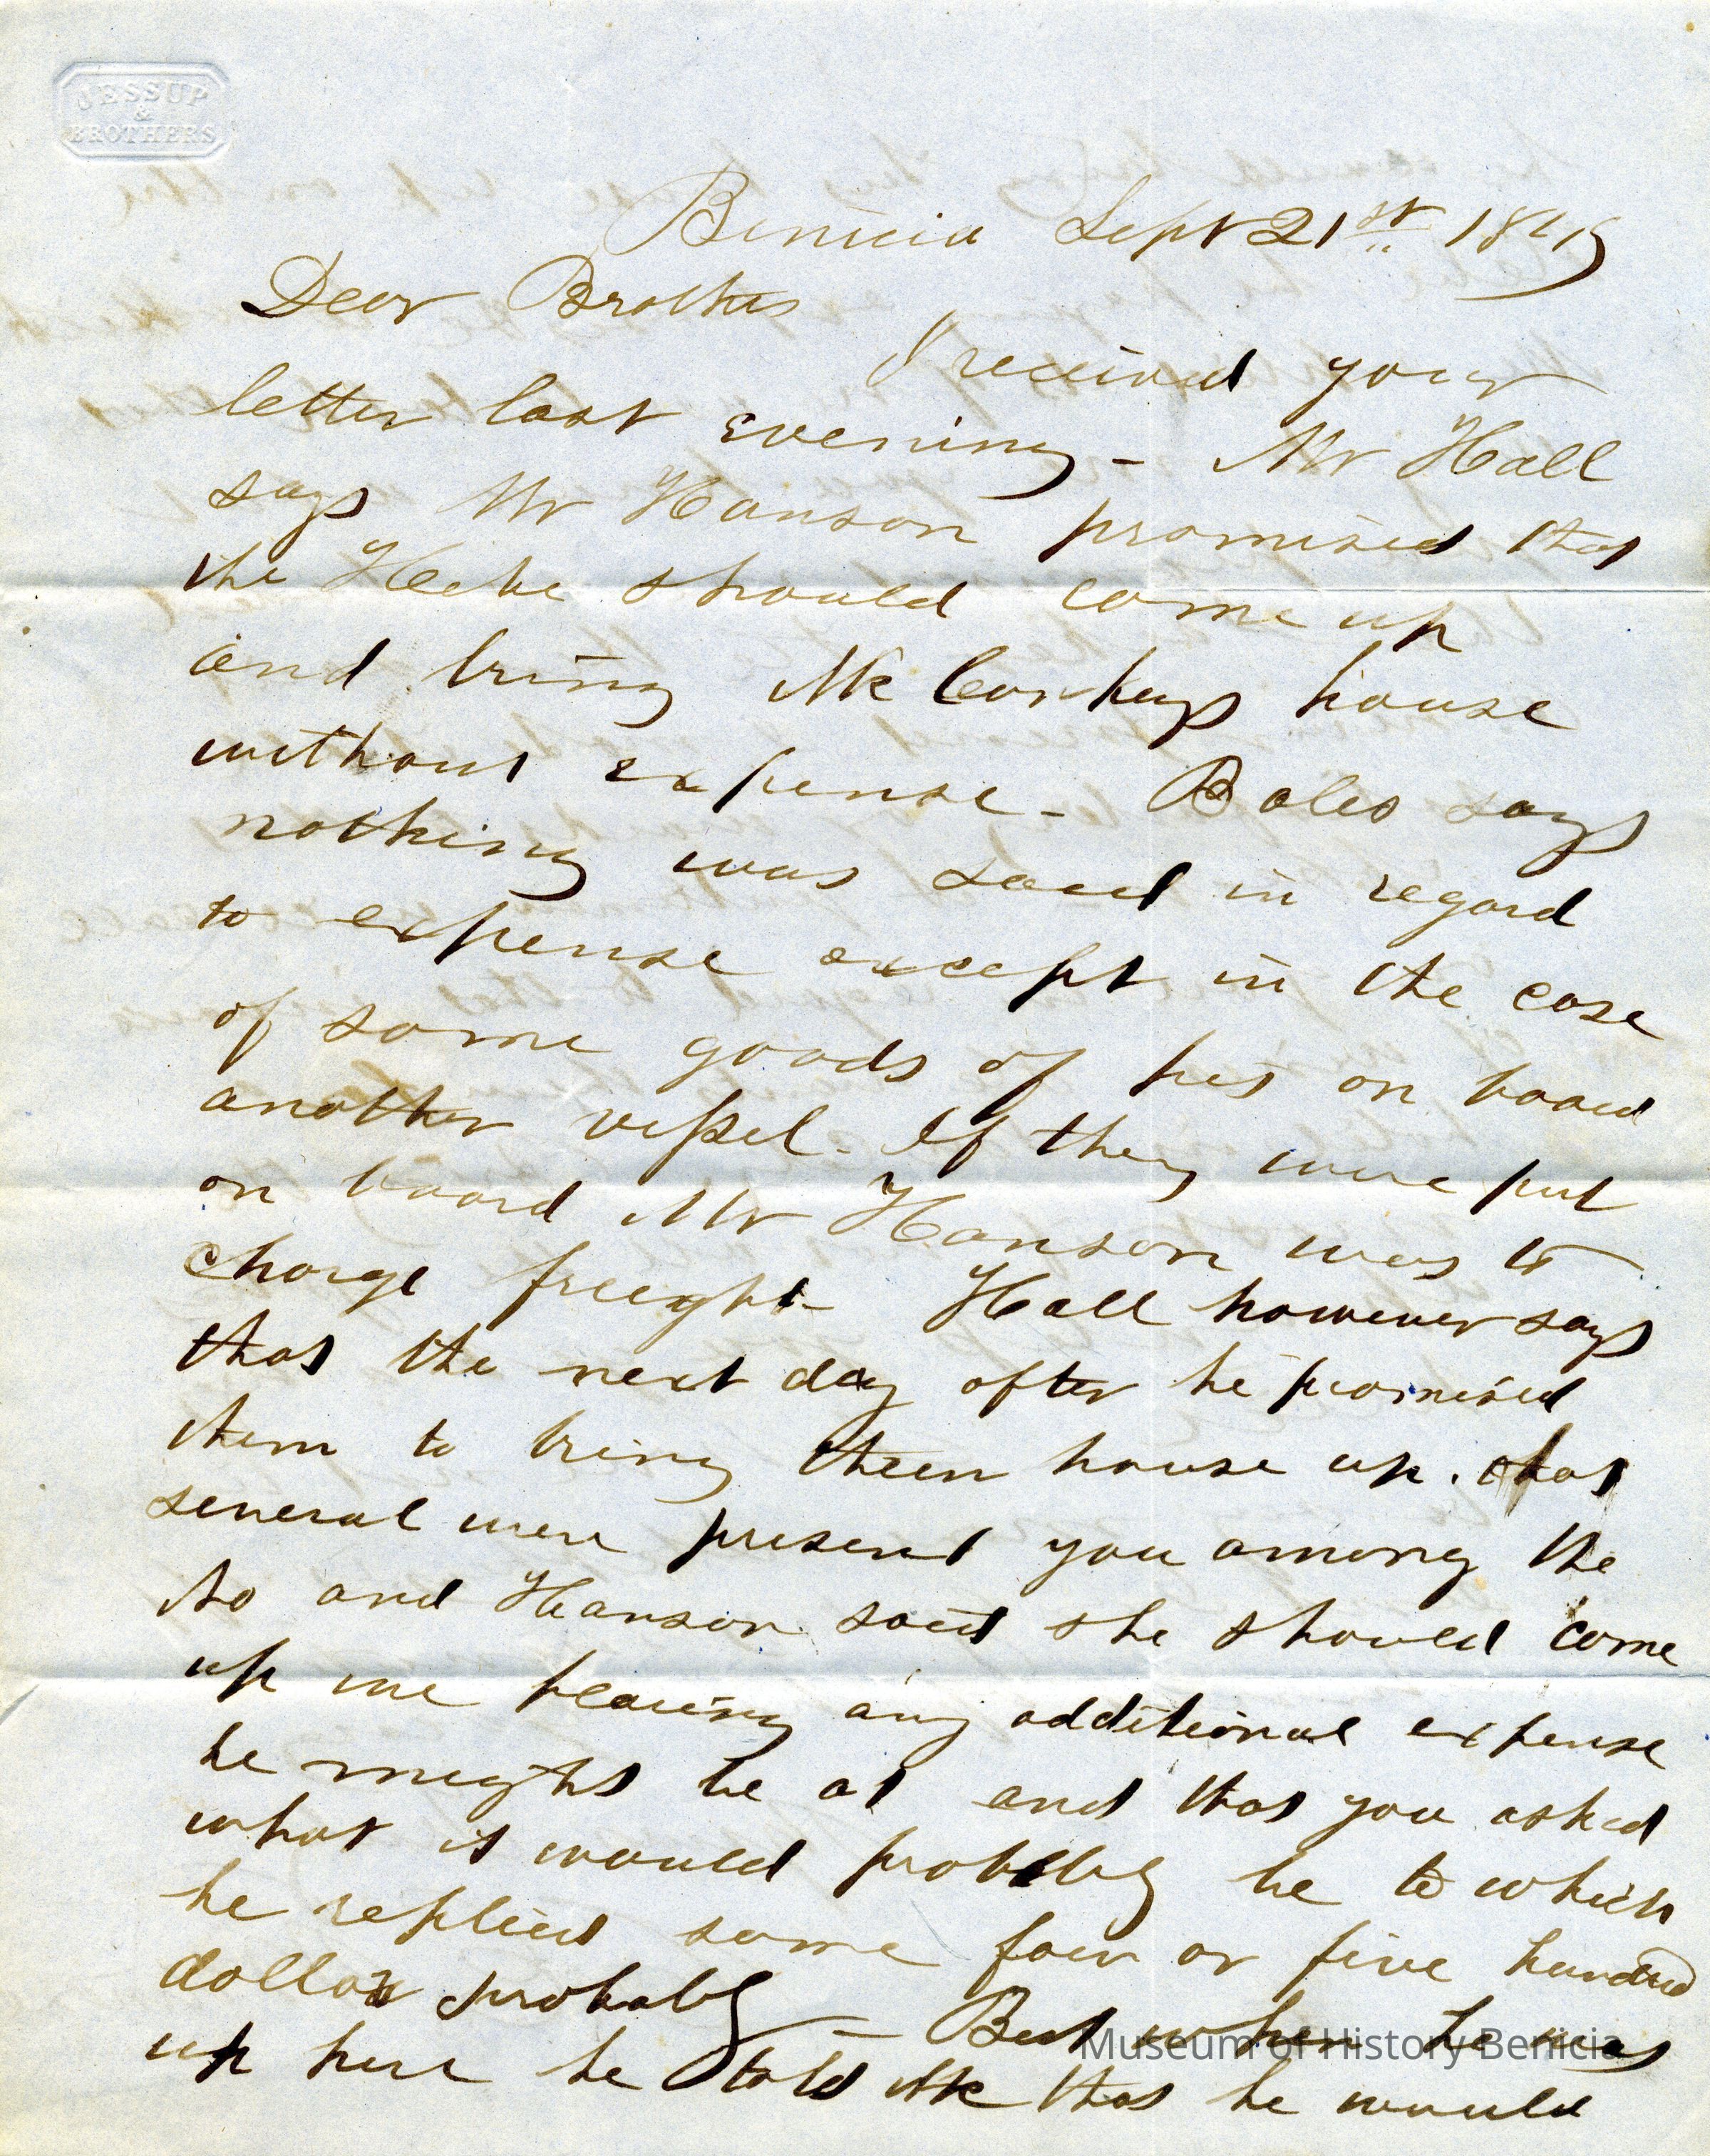 JESSUP
&
BROTHERS
Benicia Sept 21st 1849
Dear Brother
I received your
letter last evening - Mr Hall
says Mr Hanson promised that
the Hebe should come up
and bring Mc Conkeys house
without expense - Boles says
nothing was said in regard
to expense except in the case
of some goods of his on board
another vessel. If they were put
on board Mr Hanson was to
charge freight - Hall however says
that the next day after he promised
them to bring their house up. that
several were present you among the
No and Hanson said she should come
up we bearing any additional expense
he might be at and that you asked
what it would probably be to which
he replied some four or five hundred
dollars probably - But when he was
up here he told Mc that he would
Museum of History Benicia